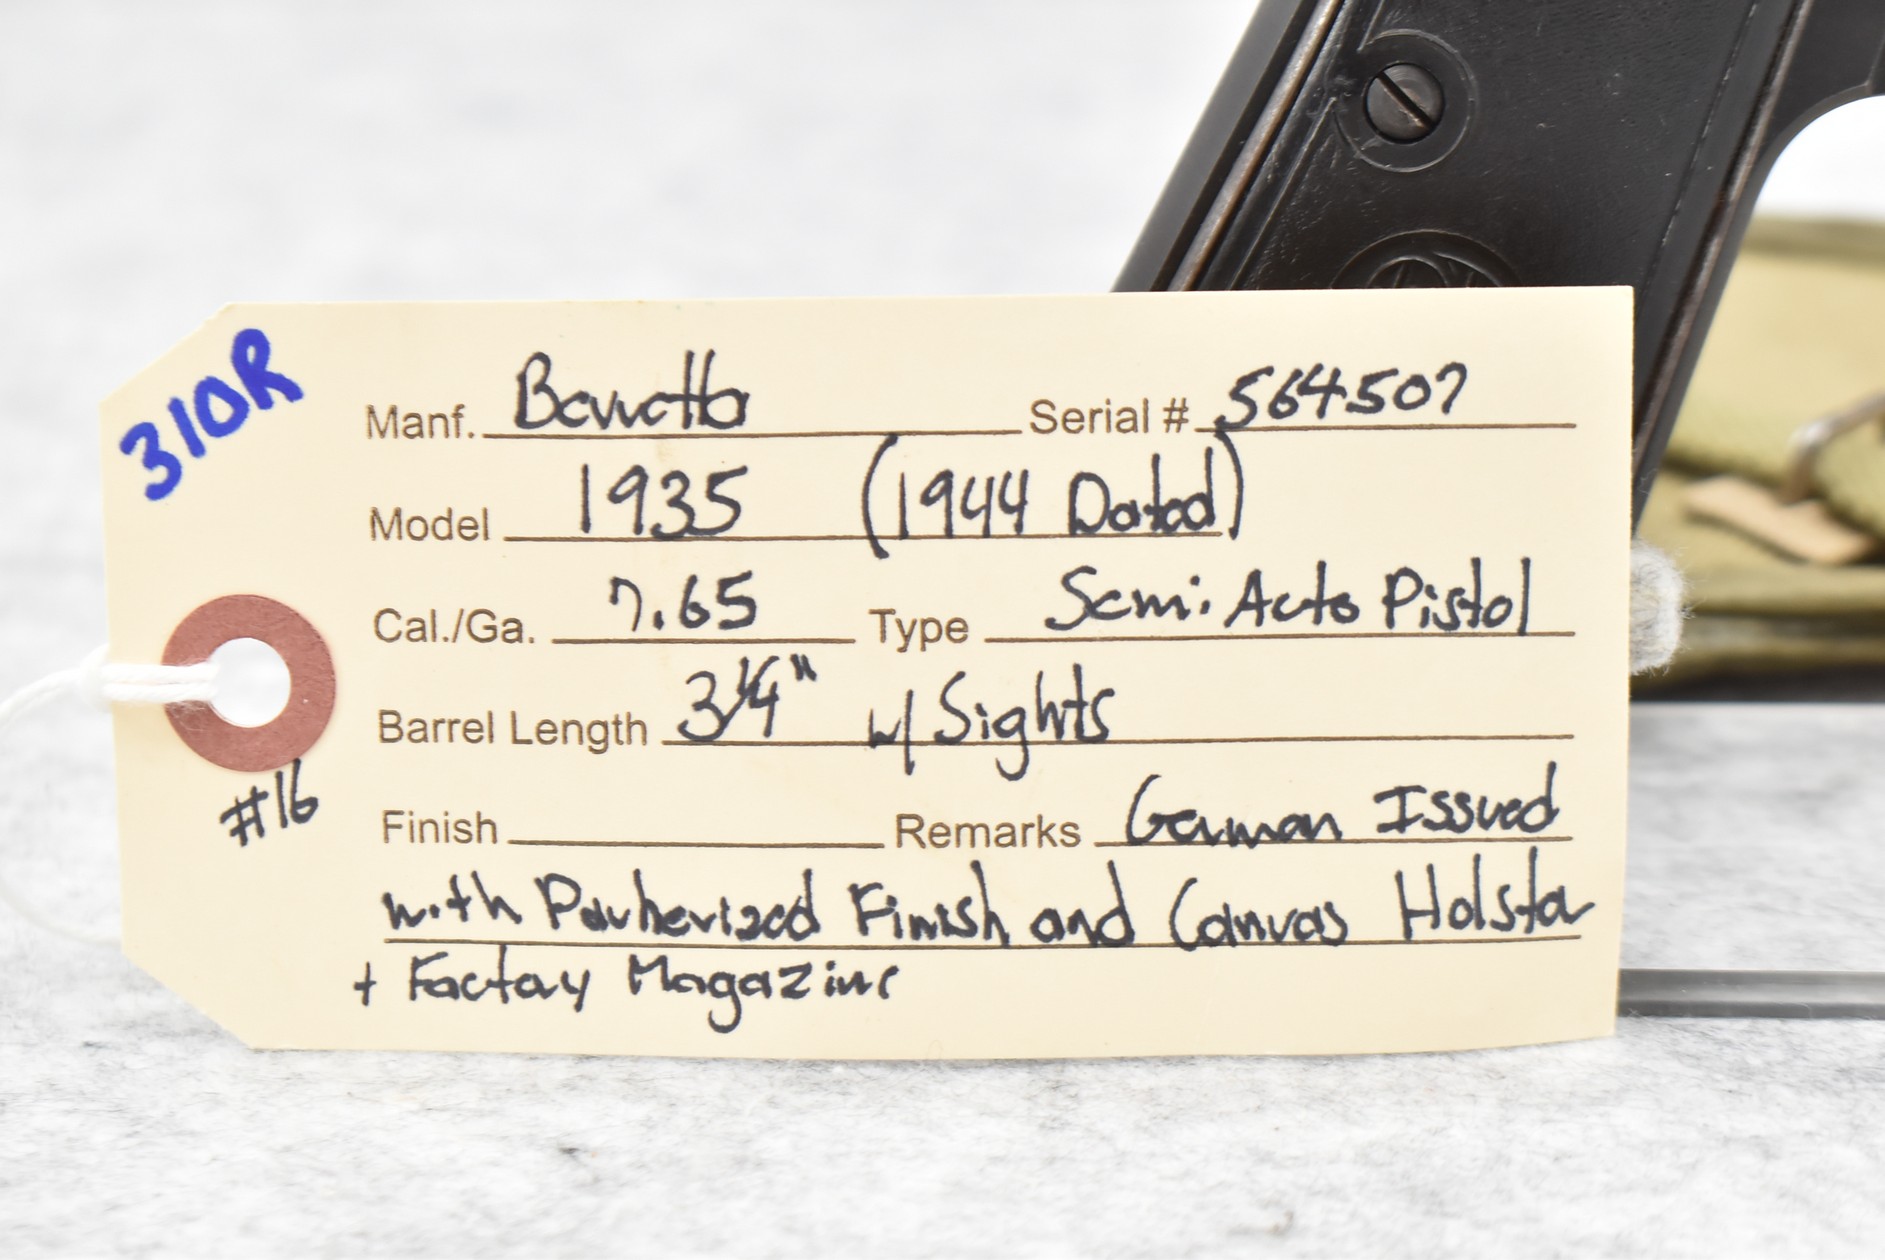 310R
Manf. Berretta Serial # 564507
Model 1935 (1944 Dated)
Cal./Ga. 7.65 Type Semi-Auto Pistol
Barrel Length 3 1/4" w/ Sights
#16
Finish Remarks German Issued
with Parkerized Finish and Canvas Holster
+ Factory Magazine